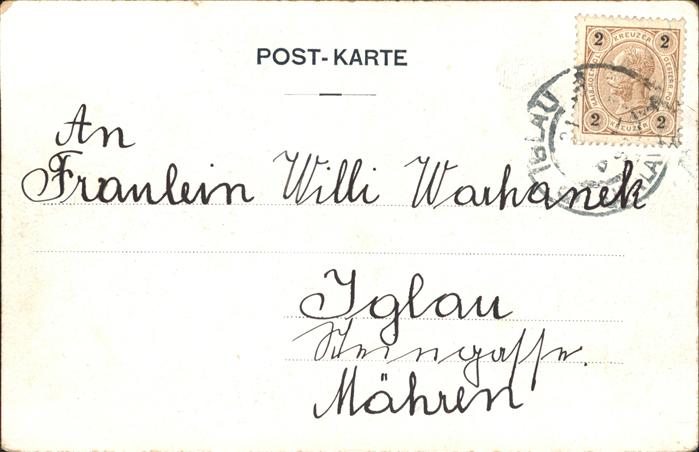 POST-KARTE
2 KREUZER 2
2 KREUZER 2
IGLAU
An
Fraulein Willi Warhanek
Iglau
Steingasse.
Mähren